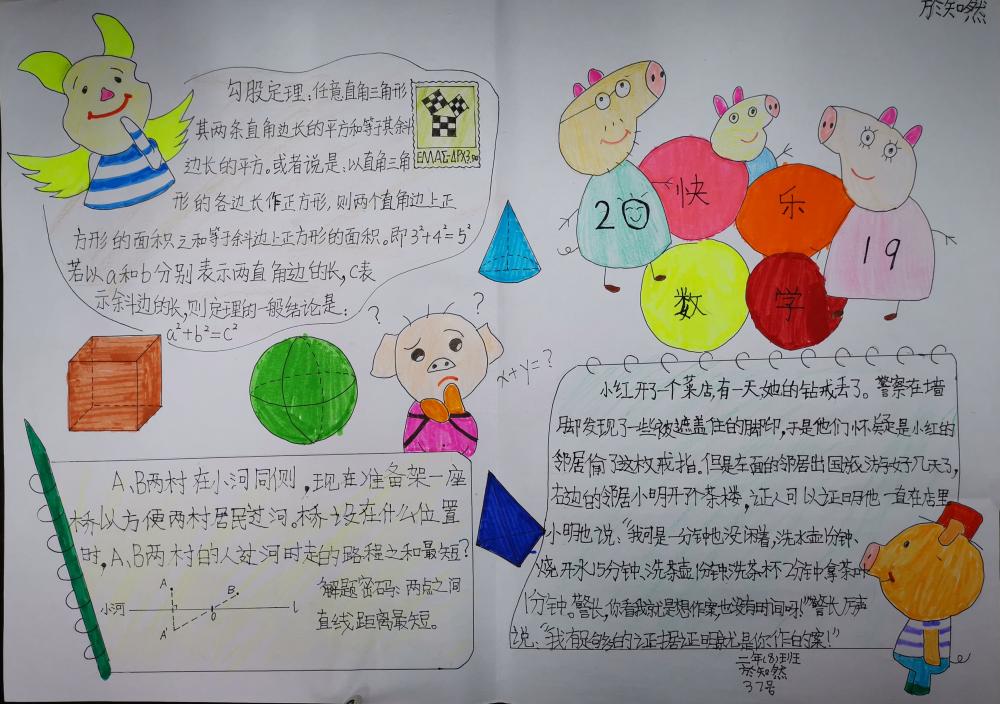 於知然
勾股定理:任意直角三角形
其两条直角边长的平方和等于其斜
边长的平方。或者说是:以直角三角
形的各边长作正方形,则两个直角边上正
方形的面积之和等于斜边上正方形的面积。即3²+4²=5²
若以a和b分别表示两直角边的长,c表
示斜边的长,则定理的一般结论是:
a²+b²=c²
ΕΛΛΑΣ-ΔΡΧ3.50
快
乐
数
学
20
19
?
?
x+y=?
A、B两村在小河同侧,现在准备架一座
桥以方便两村居民过河。桥设在什么位置
时,A、B两村的人过河时走的路程之和最短?
解题密码:两点之间
直线距离最短。
小河
A
B
A'
O
l
小红开了一个菜店,有一天,她的钻戒丢了。警察在墙
脚发现了一些被遮盖住的脚印,于是他们怀疑是小红的
邻居偷了这枚戒指。但是左面的邻居出国旅游好几天了,
右边的邻居小明开了个茶楼,证人可以证明他一直在店里
小明也说:"我可是一分钟也没闲着,洗水壶1分钟、
烧开水15分钟、洗茶壶1分钟、洗茶杯2分钟、拿茶叶
1分钟。警长,你看我就是想作案,也没有时间呀!"警长厉声
说:"我有足够的证据证明就是你作的案!"
二年(8)班
於知然
37号